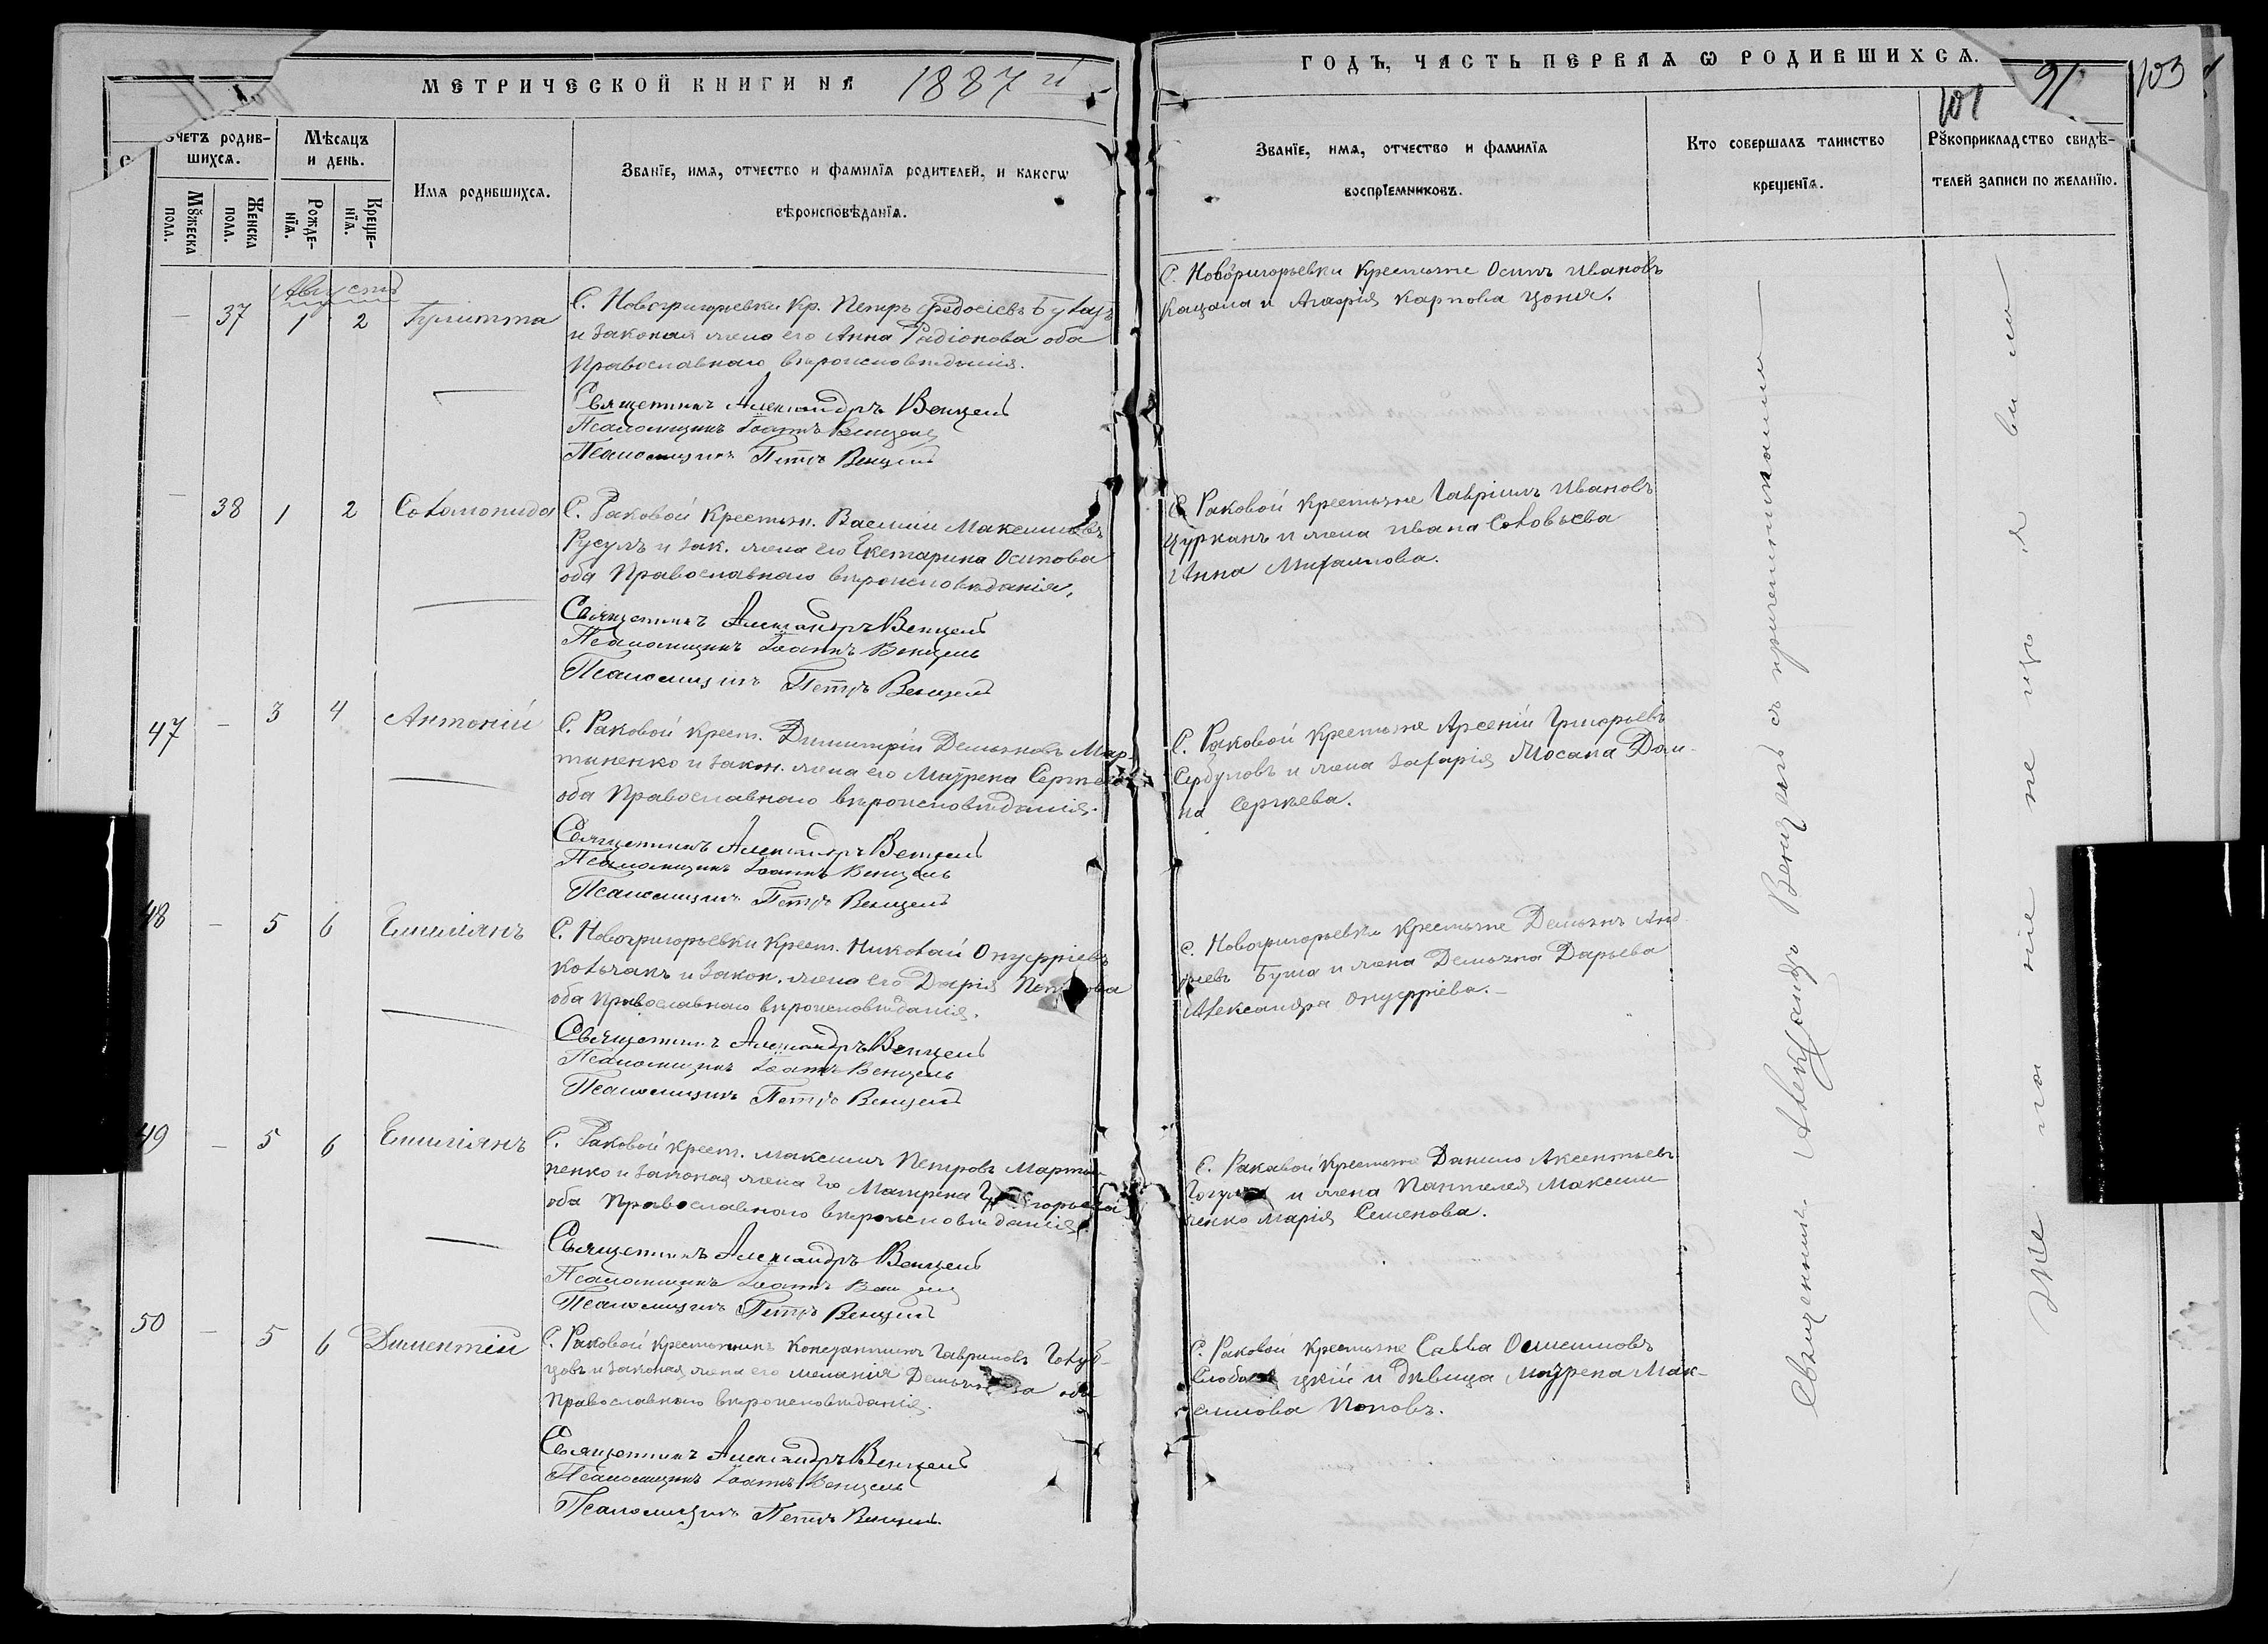 МЕТРИЧЕСКОЙ КНИГИ НА 1887 й
ГОДЪ, ЧАСТЬ ПЕРВАЯ Ѡ РОДИВШИХСЯ.
91
103
101
I.
счетъ родив-
шихся.
Мѣсяцъ
и день.
Имя родившихся.
Званїе, имя, отчество и фамилїя родителей, и какогѡ
вѣроисповѣданїя.
Мꙋжеска
пола.
Женска
пола.
Рожде-
нїя.
Креще-
нїя.
Званїе, имя, отчество и фамилїя
воспрїемниковъ.
Кто совершалъ таинство
крещенїя.
Рꙋкоприкладство свидѣ-
телей записи по желанїю.
Августъ
— 37 1 2 Гулитта
С. Новогригорьевки Кр. Петръ Федосіевъ
и законая жена его Анна Радіонова оба
Православнаго вѣроисповѣданія.
Священникъ Александръ Венцель
Псаломщикъ Іоаннъ Венцель
Псаломщикъ Петръ Венцель
С. Новогригорьевки Крестьяне Осипъ Ивановъ
Кацапа и Агафія Карпова Цопа.
— 38 1 2 Соломонида
С. Раковой Крестьян. Василій Максимовъ
Русулъ и зак. жена его Екатарина Осипова
оба Православнаго вѣроисповѣданія.
Священникъ Александръ Венцель
Псаломщикъ Іоаннъ Венцель
Псаломщикъ Петръ Венцель
С. Раковой Крестьяне Гавріилъ Ивановъ
Цурканъ и жена Ивана Соловьева
Анна Михаилова.
47 — 3 4 Антоній
С. Раковой Крест. Димитрій Демьяновъ Мар-
тиненко и закон. жена его Маѵрена
оба Православнаго вѣроисповѣданія.
Священникъ Александръ Венцель
Псаломщикъ Іоаннъ Венцель
Псаломщикъ Петръ Венцель
С. Раковой Крестьяне Арсеній Григорьевъ
Сербуловъ и жена Захарія Мосапа Дом-
на Сергѣева.
48 — 5 6 Емиліянъ
С. Новогригорьевки Крест. Николай Онуфріевъ
Колчакъ и закон. жена его Дарія
оба Православнаго вѣроисповѣданія.
Священникъ Александръ Венцель
Псаломщикъ Іоаннъ Венцель
Псаломщикъ Петръ Венцель
С. Новогригорьевки Крестьяне Демьянъ Анд-
реевъ Буша и жена Демьяна Дарьева
Александра Онуфріева.—
49 — 5 6 Емиліянъ
С. Раковой Крест. Максимъ Петровъ Марти-
ненко и законая жена его Матрена
оба Православнаго вѣроисповѣданія.
Священникъ Александръ Венцель
Псаломщикъ Іоаннъ Венцель
Псаломщикъ Петръ Венцель
С. Раковой Крестьяне Данило Аксентьевъ
и жена Пантелея Максим-
ченко Марія Семенова.
50 — 5 6 Диментій
С. Раковой Крестьянинъ Константинъ Гавриловъ Голуб-
цовъ и законая жена его Меланія оба
Православнаго вѣроисповѣданія.
Священникъ Александръ Венцель
Псаломщикъ Іоаннъ Венцель
Псаломщикъ Петръ Венцель
С. Раковой Крестьяне Савва
и дѣвица Маѵрена Мак-
симова Поповъ.
Священникъ Александръ Венцель съ причетниками